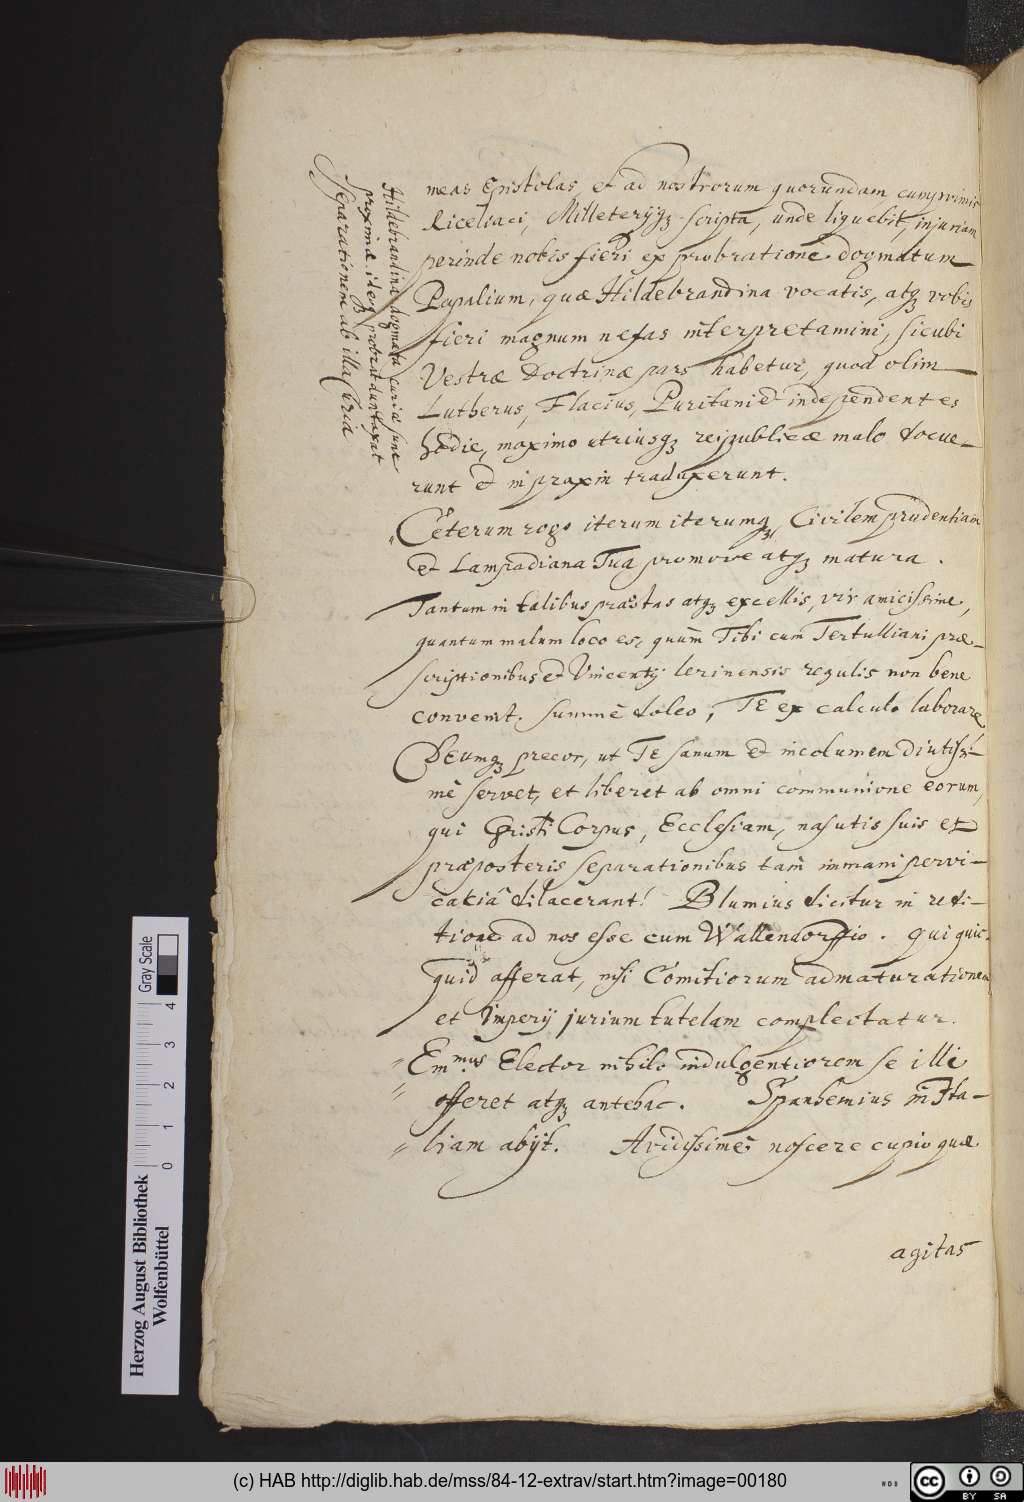 meas Epistolas, et ad nostrorum quorundam, cumprimis
Riceliaci, Milleterijqꝫ scripta, unde liquebit, injuriam
perinde nobis fieri ex probratione dogmatum
Papalium, quæ Hildebrandina vocatis, atqꝫ vobis
fieri magnum nefas interpretamini, sicubi
Vestræ Doctrinæ pars habetur, quod olim
Lutherus, Flacius, Puritani et independentes
hodie, maximo utriusqꝫ reipublicæ malo docue-
runt et in praxin traduxerunt.
Cæterum rogo iterum iterumqꝫ, Civilem prudentiam
et Lampadiana Tua promove atqꝫ matura.
Tantum in talibus præstas atqꝫ excellis, vir amicissime,
quantum malum loco es, quum Tibi cum Tertulliani præ-
scriptionibus et Vincentij lerinensis regulis non bene
convenit. summè doleo, TE ex calculo laborare.
DEUmqꝫ precor, ut TE sanum et incolumem diutissi-
mè servet, et liberet ab omni communione eorum,
qui Christi Corpus, Ecclesiam, nasutis suis et
præposteris separationibus tam immani pervi-
caciâ dilacerant! Blumius dicitur in redi-
tione ad nos esse cum Wallendorffio. qui quic-
quid afferat, nisi Comitiorum admaturationem
et Imperij jurium tutelam complectatur.
Em.mus Elector nihilo indulgentiorem se illi
offeret atqꝫ antehac. Spanhemius in Ita-
liam abijt. Avidissimè noscere cupio quæ
agitas
Hildebrandina dogmata curiæ sunt
proximæ ideoqꝫ probant duntaxat
Separationem ab illa Curia
Herzog August Bibliothek
Wolfenbüttel
Gray Scale
0 1 2 3 4
(c) HAB http://diglib.hab.de/mss/84-12-extrav/start.htm?image=00180
cc BY SA